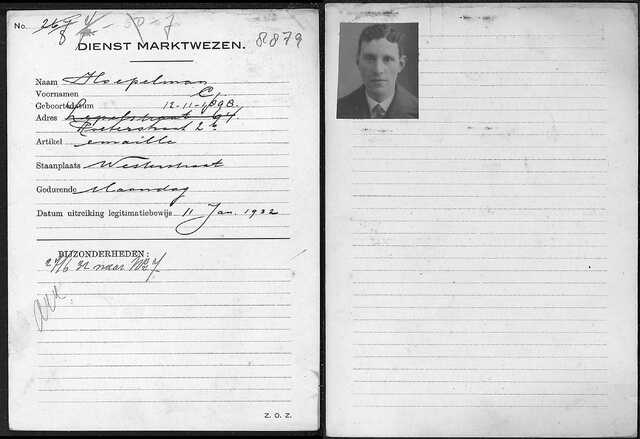 No.
8879
DIENST MARKTWEZEN.
Naam Hoepelman
Voornamen C.
Geboortedatum 12-11-1898.
Adres 94.
2
Artikel emaille
Staanplaats Westerstraat
Gedurende Maandag
Datum uitreiking legitimatiebewijs 11 Jan. 1932
BIJZONDERHEDEN:
naar
Z. O. Z.